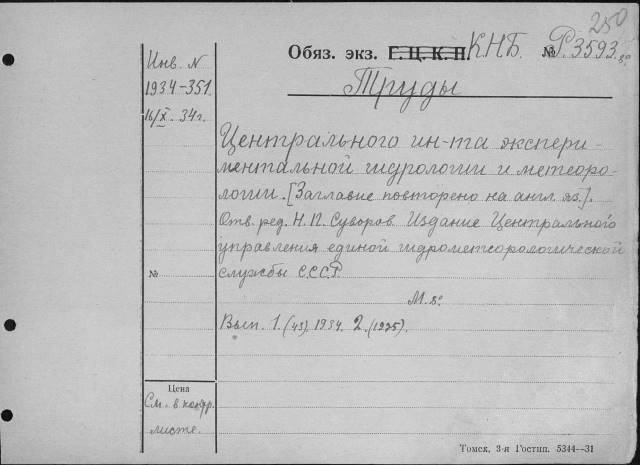 250
Обяз. экз. Г. Ц. К. П. К.Н.Б. № Р. 3593. 8º
Инв. N
1934-351.
16/X. 34 г.
Труды
Центрального ин-та экспери-
ментальной гидрологии и метеоро-
логии. [Заглавие повторено на англ. яз.].
Отв. ред. Н. П. Суворов. Издание Центрального
управления единой гидрометеорологической
№ службы С.С.С.Р.
М. 8º
Вып. 1. (43). 1934. 2. (1935).
Цена
См. в контр.
листе.
Томск, 3-я Гостип. 5344—31